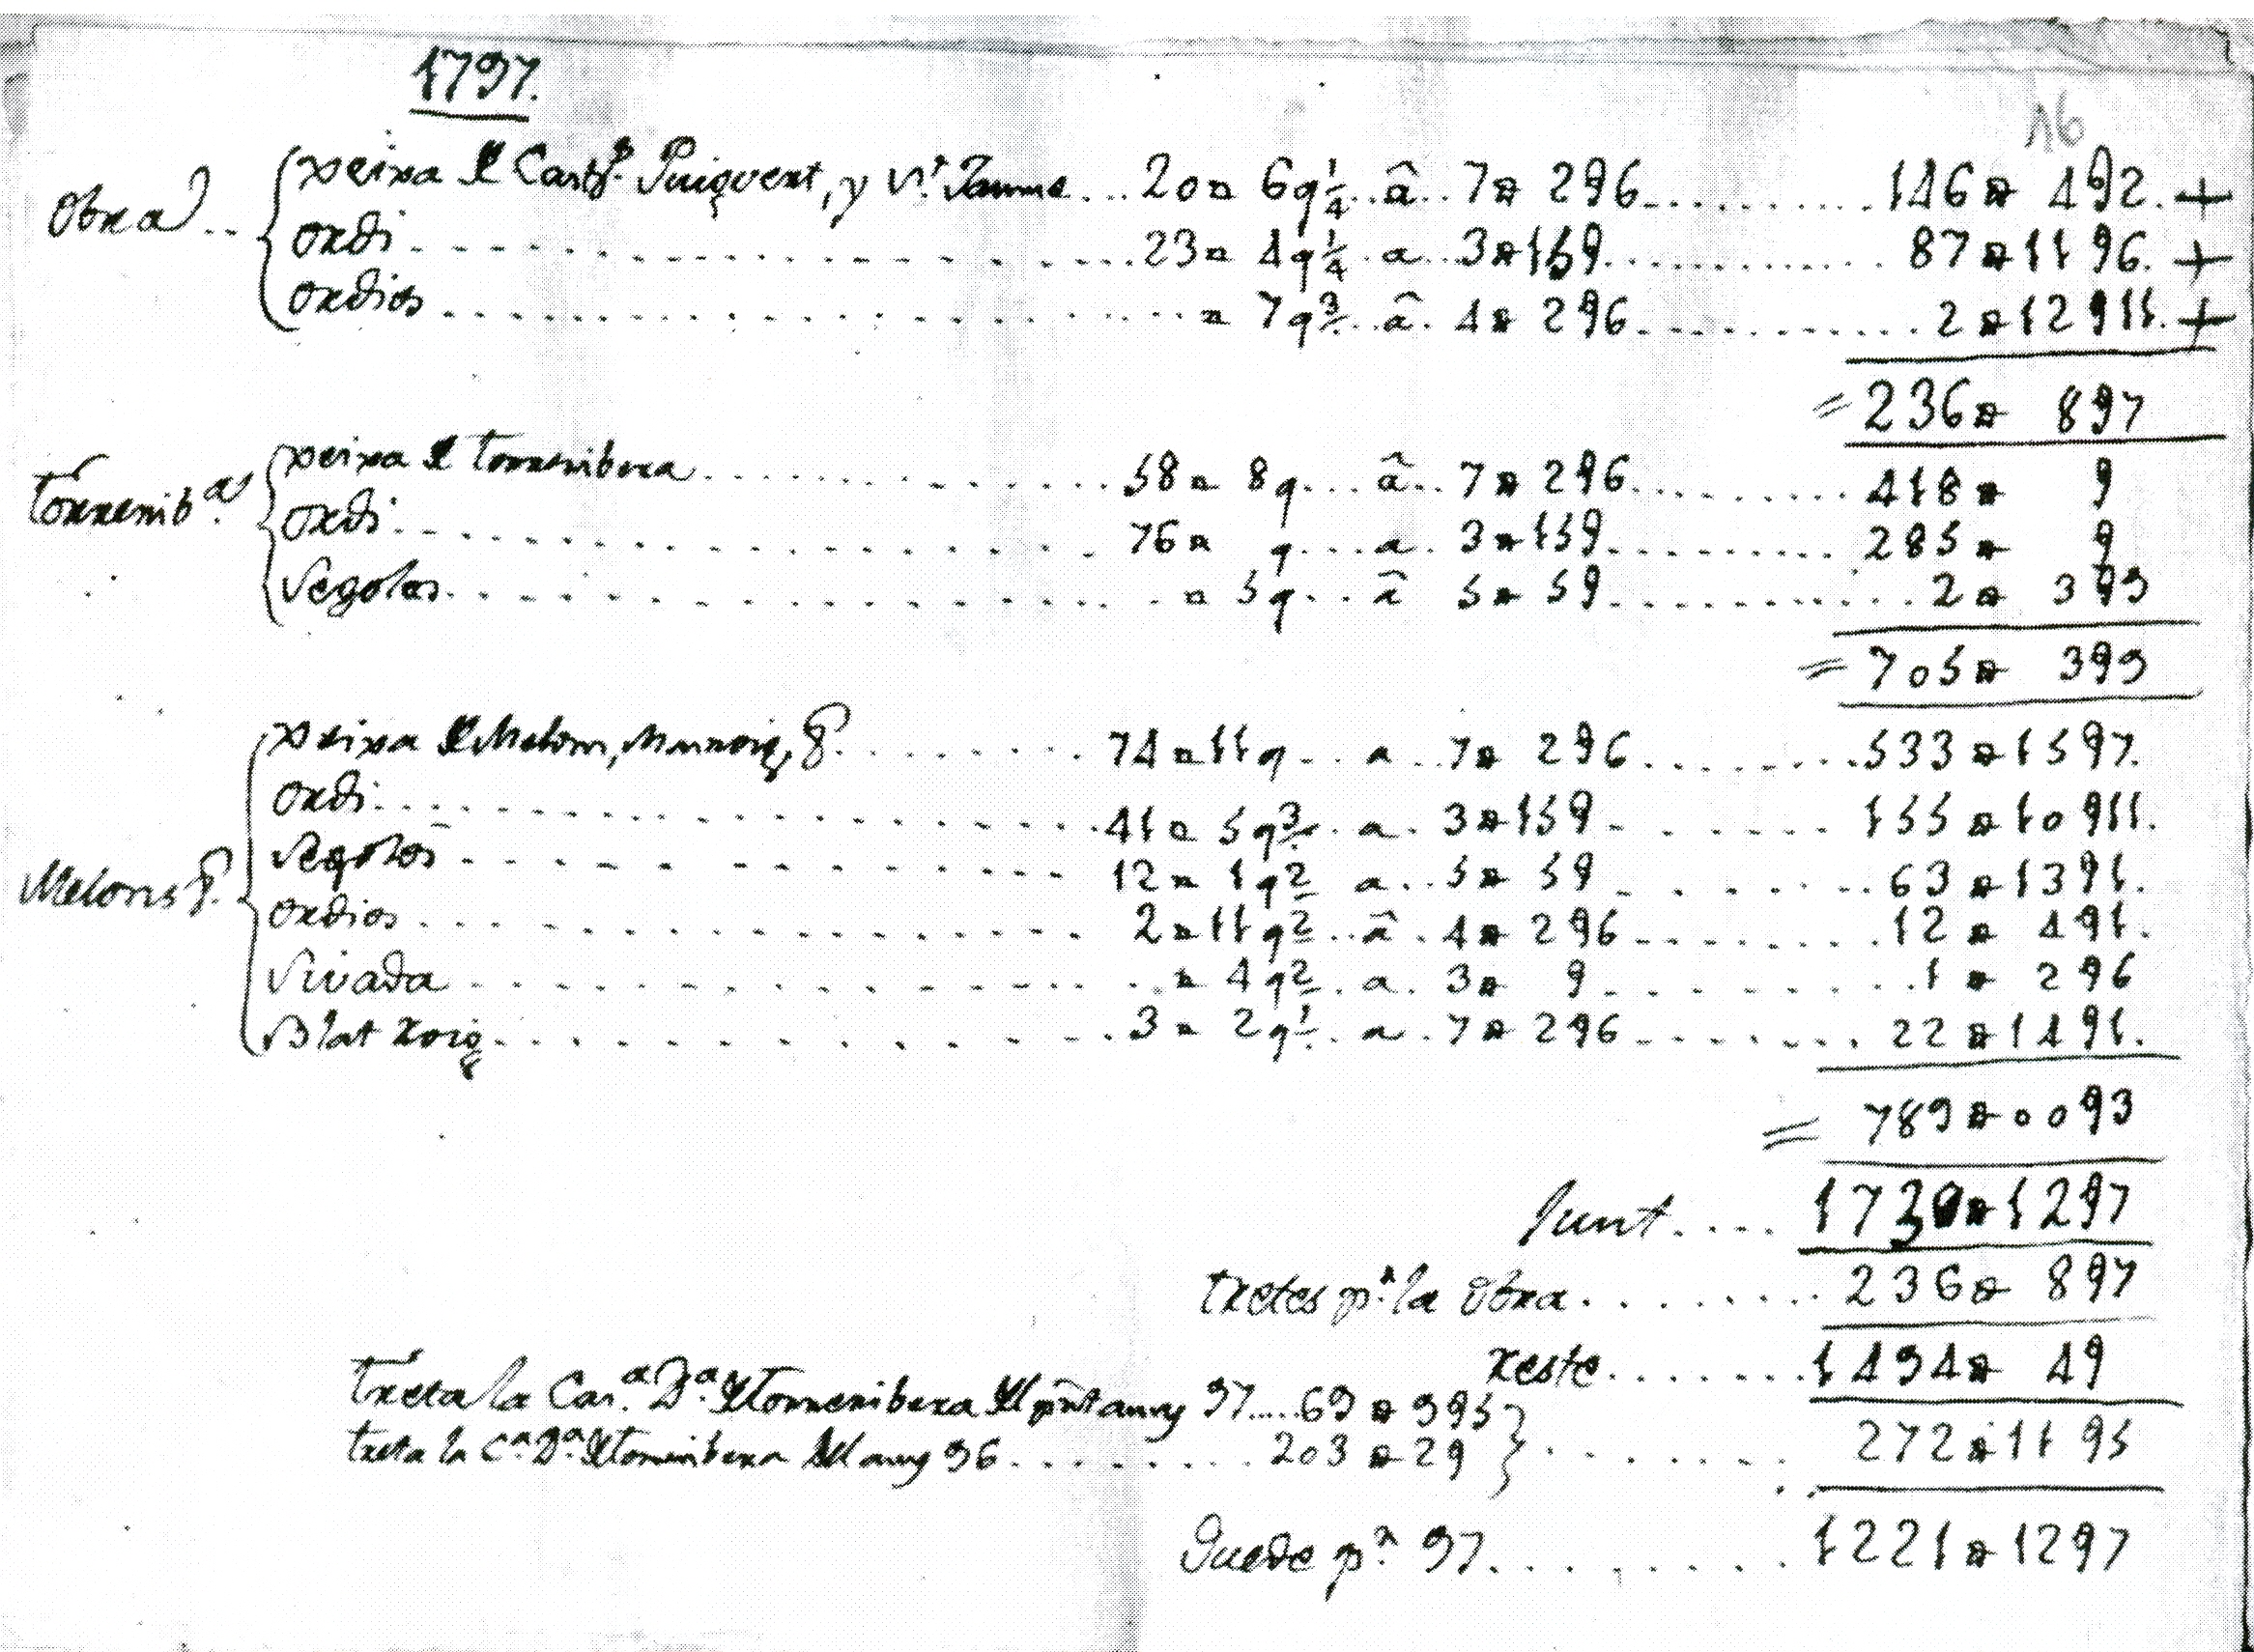 1797.
16
Obra .. xeixa de Castº Puigvert, y St Jaume ... 20¤ 6q 1/4 .. â .. 7 ₶ 2 9 6 ......... 146 ₶ 4 9 2. +
ordi ............ 23¤ 4q 1/4 . a .. 3 ₶ 15 9 ............ 87 ₶ 11 9 6. +
ordios ............ ¤ 7q 3 .. â . 4 ₶ 2 9 6 ............ 2 ₶ 12 9 11. +
= 236 ₶ 8 9 7
Torrerib.as xeixa de Torreribera ............ 58¤ 8q ... â .. 7 ₶ 2 9 6 ......... 418 ₶ 9
ordi ............ 76¤ q ... a . 3 ₶ 15 9 ......... 285 ₶ 9
Segoles ............ ¤ 5q .. â 5 ₶ 5 9 ......... 2 ₶ 3 9 9
= 705 ₶ 3 9 9
xeixa de ......... 74¤ 11q .. a .. 7 ₶ 2 9 6 ......... 533 ₶ 15 9 7.
ordi ............ 41¤ 5q 3 . a . 3 ₶ 15 9 ...... 155 ₶ 10 9 11.
Segoles ............ 12¤ 1q 2 a .. 5 ₶ 5 9 ...... 63 ₶ 13 9 1.
Melons ordios ............ 2¤ 11q 2 .. â . 4 ₶ 2 9 6 ...... 12 ₶ 4 9 1.
Sivada ............ ¤ 4q 2 . a . 3 ₶ 9 ...... 1 ₶ 2 9 6
Blat roig ............ 3¤ 2q 1 . a . 7 ₶ 2 9 6 ...... 22 ₶ 14 9 1.
= 789 ₶ 0 0 9 3
Junt .... 1730 ₶ 12 9 7
tretes pª la Obra ....... 236 ₶ 8 9 7
reste ....... 1494 ₶ 4 9
treta la Car.ª D.ª de Torreribera del pnt any 97 ..... 69 ₶ 9 9 5
treta la Cª Dª de Torreribera del any 96 ........ 203 ₶ 2 9 ...... 272 ₶ 11 9 5
Quede pª 97 ........ 1221 ₶ 12 9 7